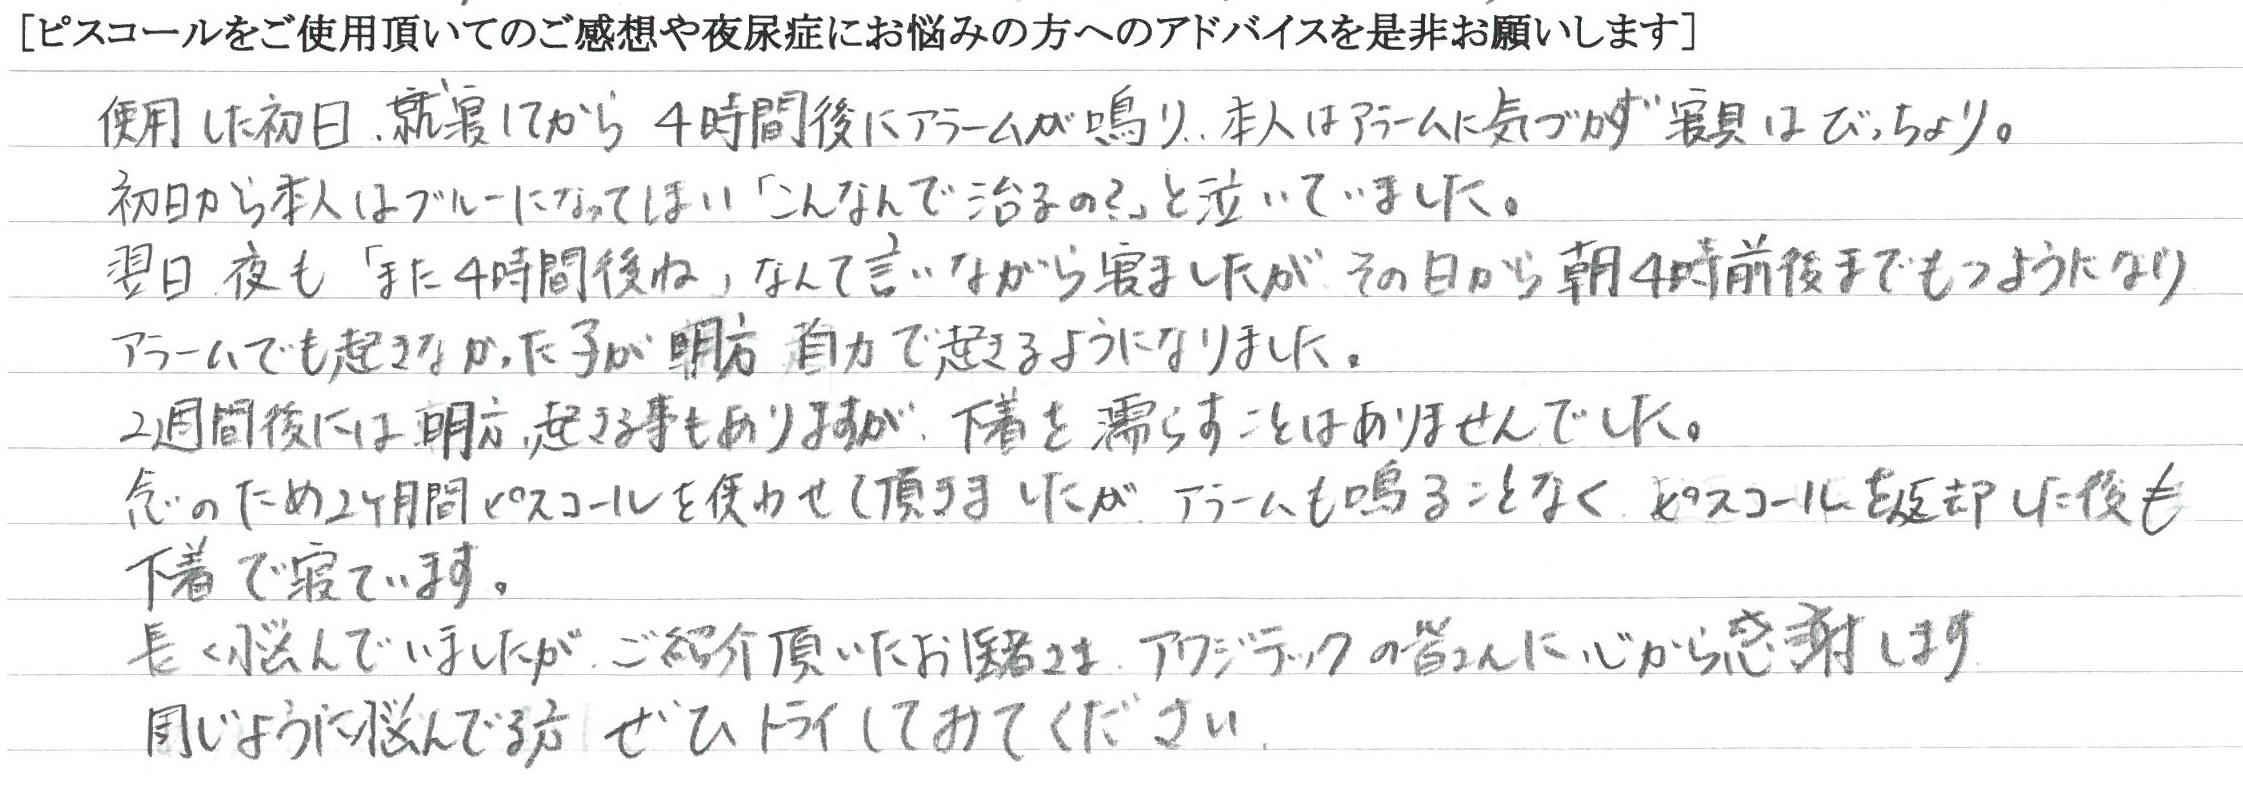 [ピスコールをご使用頂いてのご感想や夜尿症にお悩みの方へのアドバイスを是非お願いします]
使用した初日、就寝してから 4時間後にアラームが鳴り、本人はアラームに気づかず寝具はびっちょり。
初日から本人はブルーになってしまい「こんなんで治るの?」と泣いていました。
翌日 夜も「また4時間後ね」なんて言いながら寝ましたが その日から朝4時前後までもつようになり
アラームでも起きなかった子が 明方 自力で起きるようになりました。
2週間後には 明方、起きる事もありますが、下着を濡らすことはありませんでした。
念のため2ヶ月間ピスコールを使わせて頂きましたが アラームも鳴ることなく ピスコールを返却した後も
下着で寝ています。
長く悩んでいましたが、ご紹介頂いたお医者さま、アワジテックの皆さんに心から感謝します
同じように悩んでる方 ぜひトライしてみてください